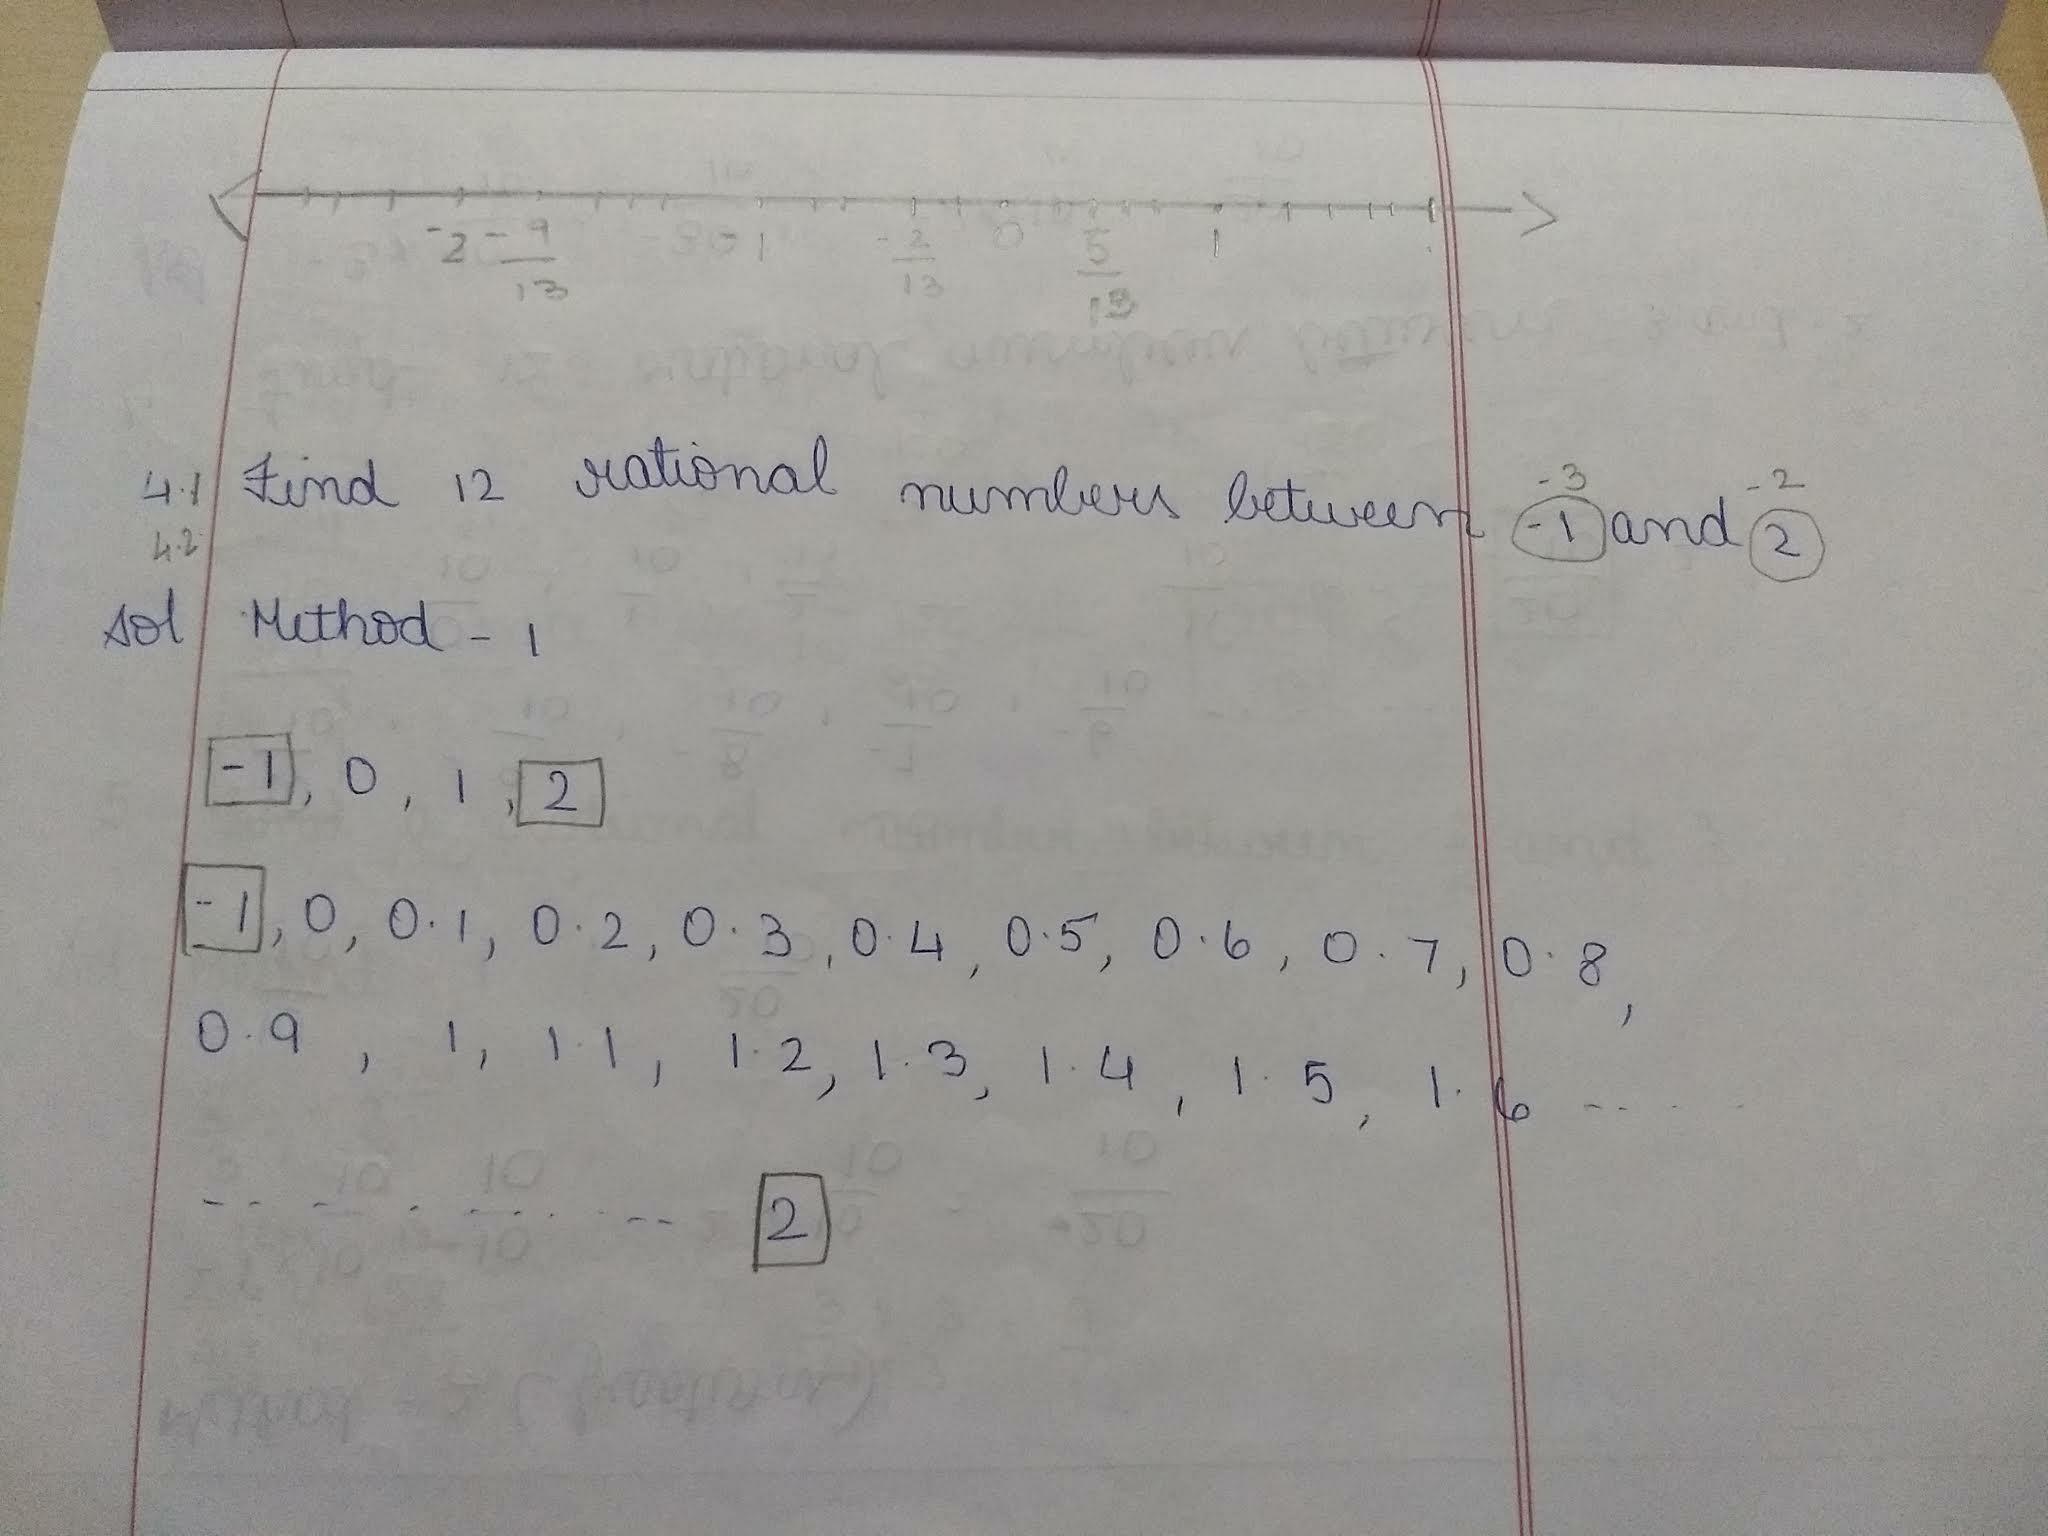 -2 -9/13 -1 -2/13 0 5/13 1
-3 -2
4.1 Find 12 rational numbers between -1 and 2
4.2
Sol Method - 1
-1, 0, 1, 2
-1, 0, 0.1, 0.2, 0.3, 0.4, 0.5, 0.6, 0.7, 0.8,
0.9, 1, 1.1, 1.2, 1.3, 1.4, 1.5, 1.6 .....
.......... 2